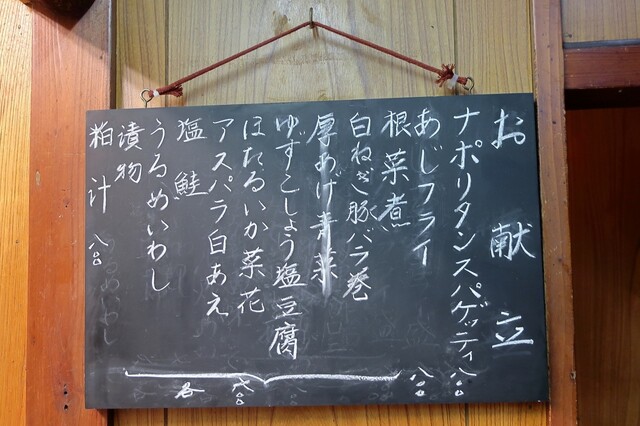 お献立
ナポリタンスパゲッティ 八〇〇
あじフライ 八〇〇
根菜煮
白ねぎ豚バラ巻
厚あげ青菜
ゆずこしょう塩豆腐
ほたるいか菜花
アスパラ白あえ
塩鮭
うるめいわし
漬物
各 六〇〇
粕汁 八〇〇